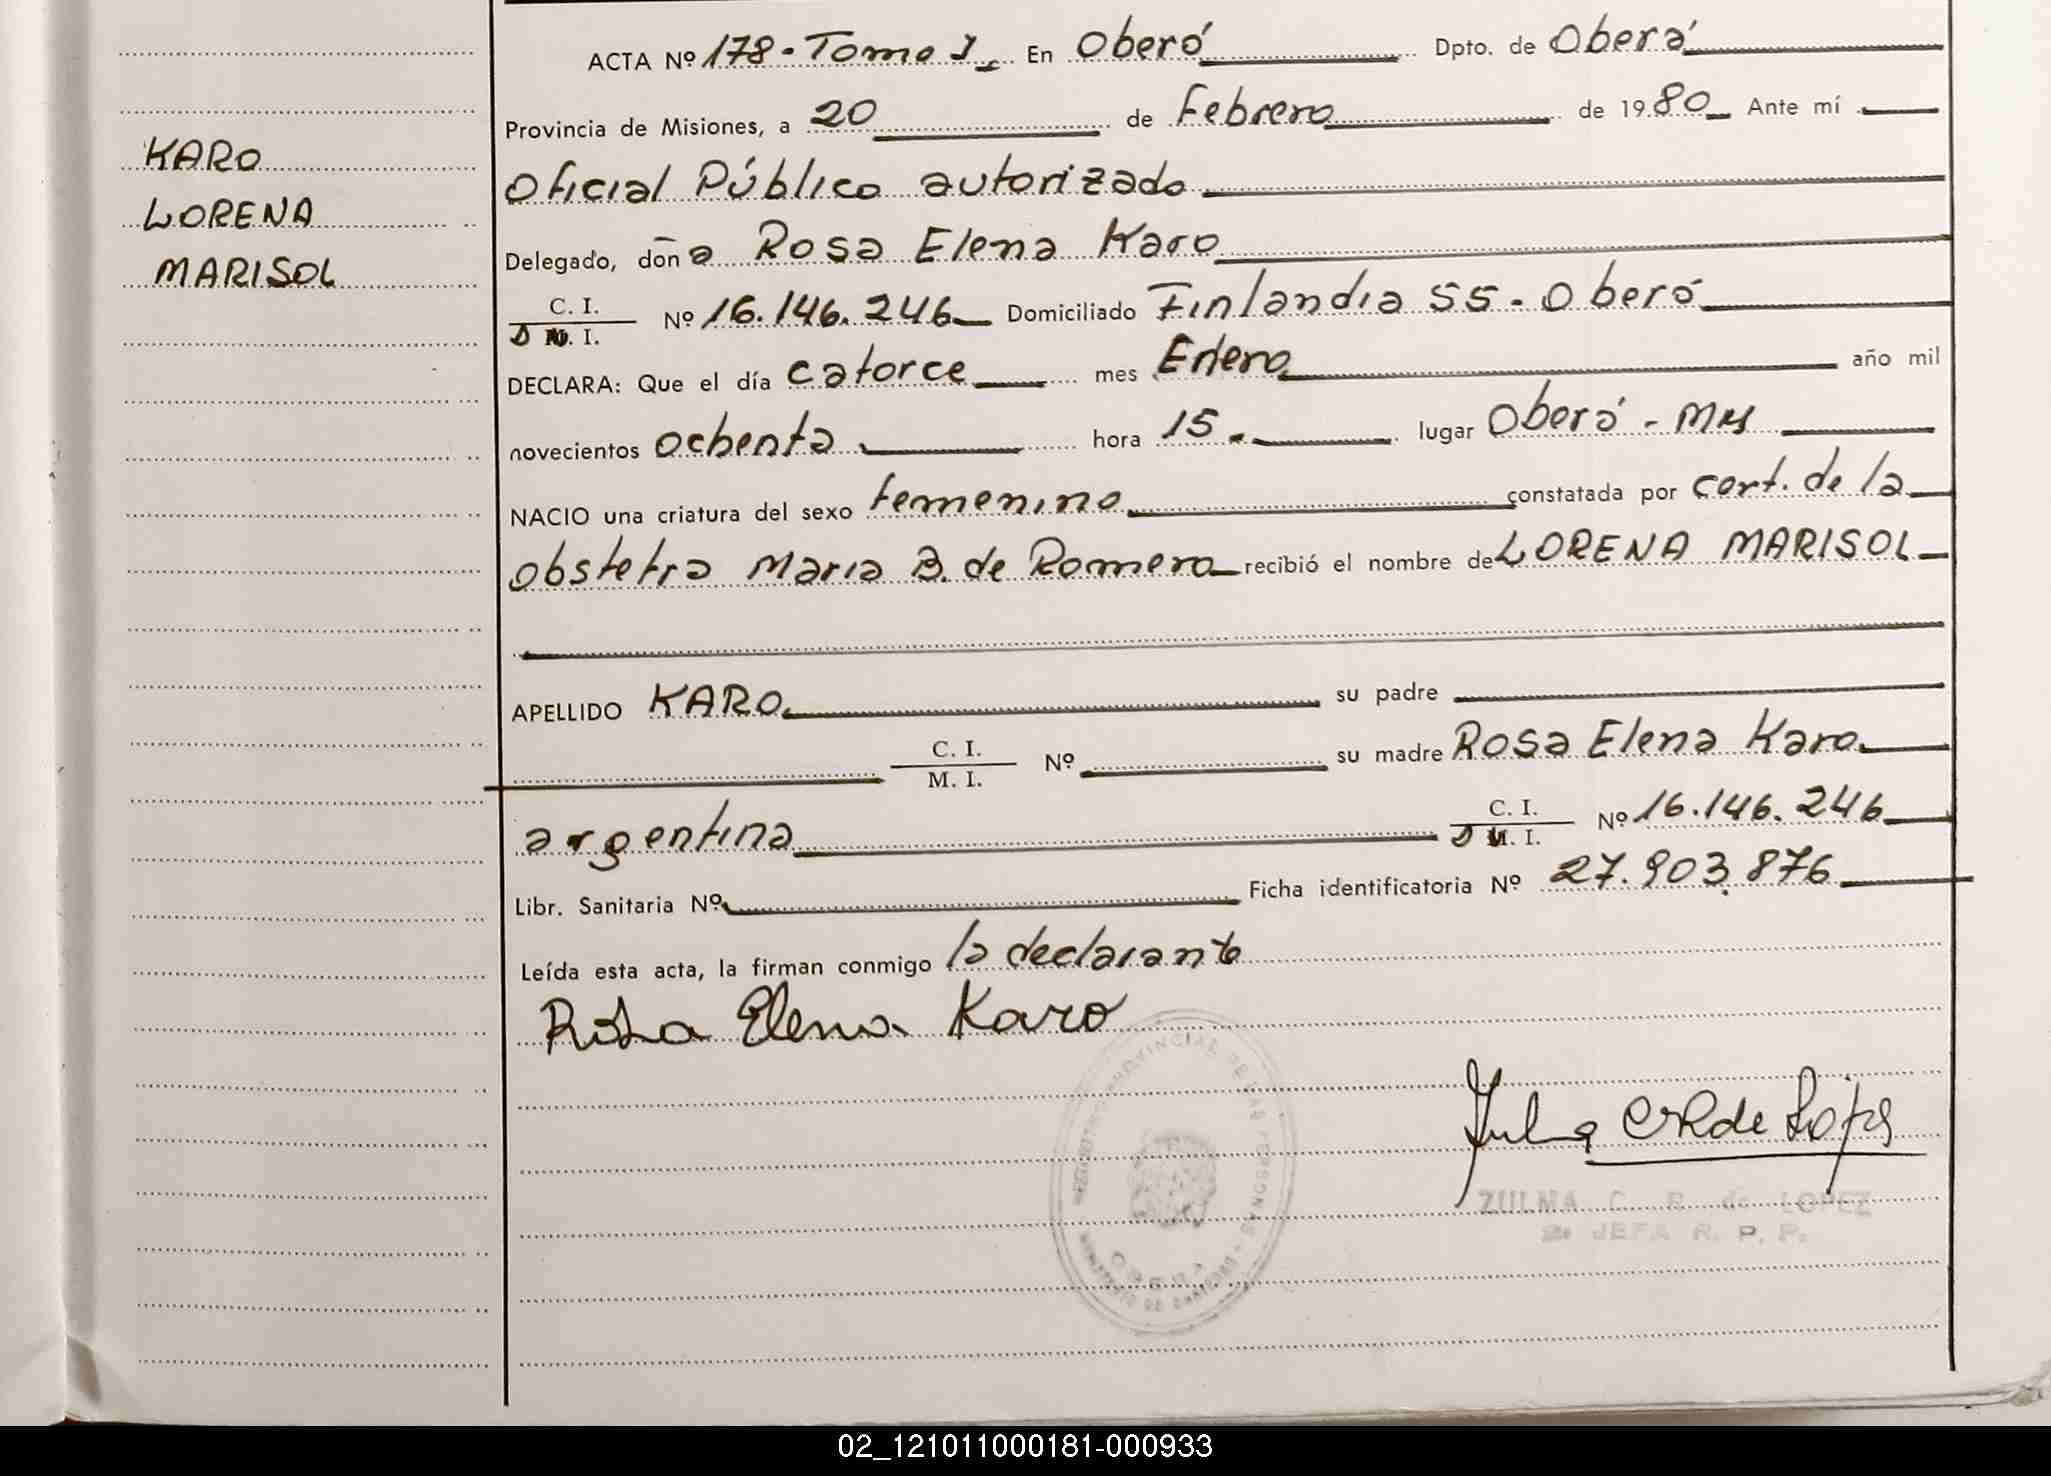 KARO
LORENA
MARISOL
ACTA Nº 178 - Tomo I En Oberá Dpto. de Oberá
Provincia de Misiones, a 20 de Febrero de 1980 Ante mí
Oficial Público autorizado
Delegado, doña Rosa Elena Karo
C. I.
D N. I. Nº 16.146.246 Domiciliado Finlandia 55 - Oberá
DECLARA: Que el día catorce mes Enero año mil
novecientos ochenta hora 15 lugar Oberá - Mns
NACIO una criatura del sexo femenino constatada por cert. de la
obstetra Maria B. de Romero recibió el nombre de LORENA MARISOL
APELLIDO KARO su padre
C. I.
M. I. Nº su madre Rosa Elena Karo
argentina C. I.
D N. I. Nº 16.146.246
Libr. Sanitaria Nº Ficha identificatoria Nº 27.903.876
Leída esta acta, la firman conmigo la declarante
Rosa Elena Karo
REGISTRO PROVINCIAL DE LAS PERSONAS
OBERA
ZULMA C. R. de LOPEZ
JEFA R. P. P.
02_121011000181-000933